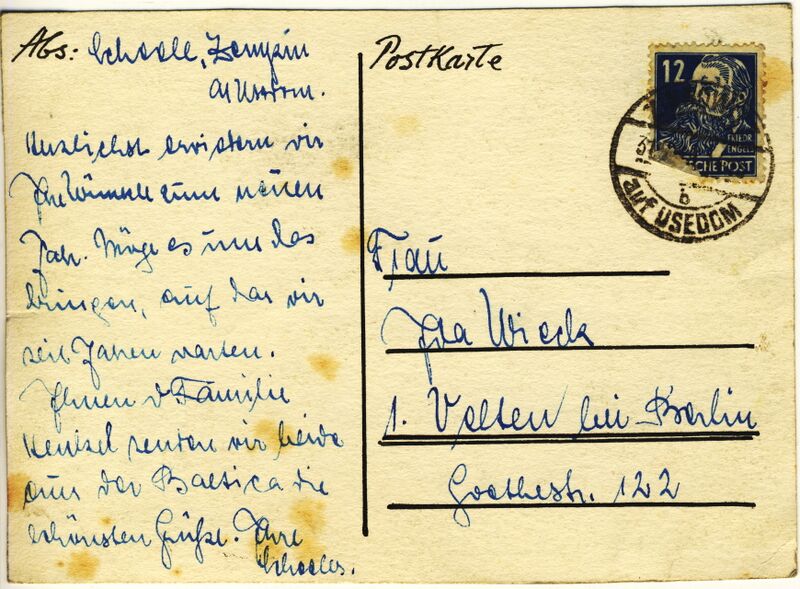 Abs: Schoele, Zempin
a. Usedom.
Herzlichst erwidern wir
Ihre Wünsche zum neuen
Jahr. Möge es uns das
bringen, auf das wir
seit Jahren warten.
Ihnen u Familie
Henkel senden wir beide
aus der Baltica die
schönsten Grüße. Ihre
Schoeles.
Postkarte
12
FRIEDR.
ENGELS
DEUTSCHE POST
b
auf USEDOM
Frau
Ida Wieck
1. Velten bei Berlin
Goethestr. 122